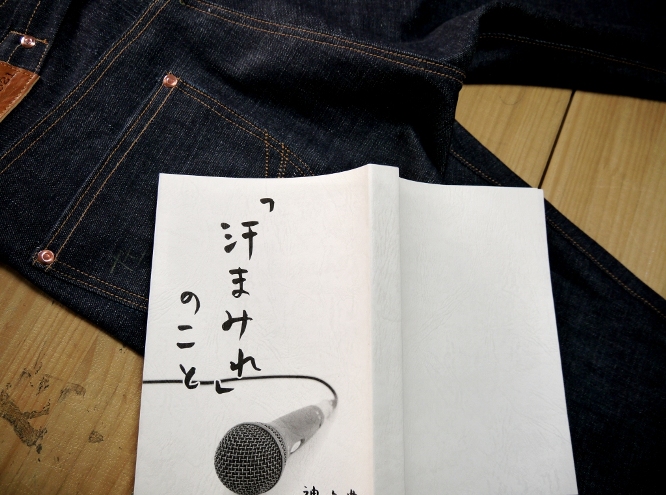 「汗まみれ」
のこと